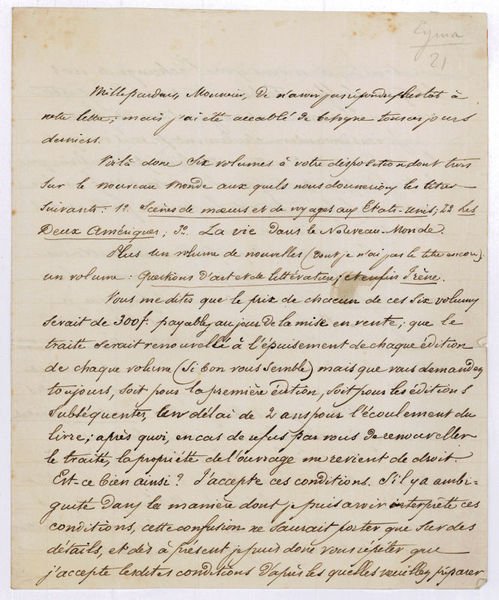 Eyma
21
Mille pardons, Monsieur, de n'avoir pas répondu plustot à
votre lettre; mais j'ai été accablé de besogne tous ces jours
derniers.
Voilà donc six volumes à votre disposition dont trois
sur le nouveau monde aux quels nous donnerions les titres
suivants: 1º Scènes de mœurs et de voyages aux Etats-Unis; 2º Les
Deux Amériques; 3º La vie dans le Nouveau-Monde.
Plus un volume de nouvelles (dont je n'ai pas le titre encore)
un volume: Questions d'art et de littérature; et enfin Irène.
Vous me dites que le prix de chacun de ces six volumes
serait de 300f. payables au jour de la mise en vente; que le
traité serait renouvellé à l'épuisement de chaque édition
de chaque volume (si bon vous semble) mais que vous demandez
toujours, soit pour la première édition, soit pour les éditions
subséquentes, un délai de 2 ans pour l'écoulement du
livre; après quoi, en cas de refus par vous de renouveller
le traité, la propriété de l'ouvrage me revient de droit.
Est-ce bien ainsi? J'accepte ces conditions. S'il y a ambi-
guité dans la manière dont je puis avoir interprété ces
conditions, cette confusion ne saurait porter que sur des
détails, et dès à présent je puis donc vous répéter que
j'accepte lesdites conditions d'après les quelles veuillez préparer